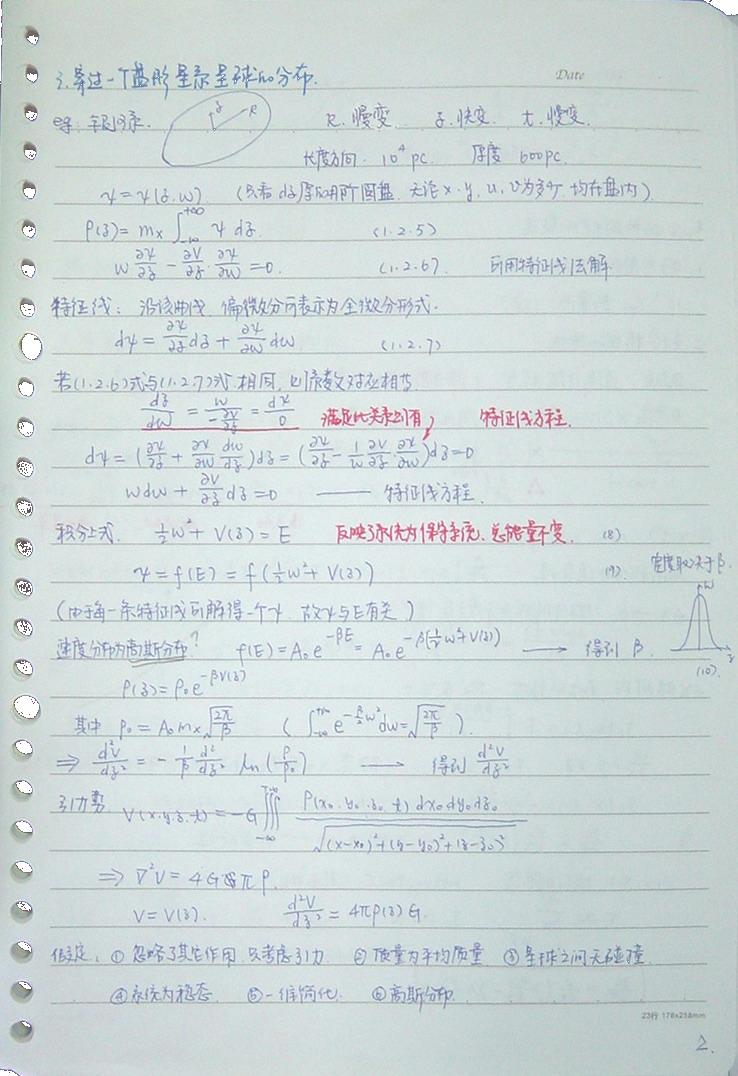 Date
3. 穿过一个盘形星系星球的分布.
eg: 银河系. z R R. 慢变 z. 快变 t. 慢变.
长度方向. 10⁴ pc. 厚度 600pc.
ψ = ψ(z, w) (只看 dz 厚的圆盘. 无论 x. y, u, v 为多少, 均在盘内)
ρ(z) = m× ∫_{-∞}^{+∞} ψ dz. (1.2.5)
w ∂ψ/∂z - ∂V/∂z ∂ψ/∂w = 0. (1.2.6) 可用特征线法解
特征线: 沿该曲线, 偏微分可表示为全微分形式.
dψ = ∂ψ/∂z dz + ∂ψ/∂w dw (1.2.7)
若(1.2.6)式与(1.2.7)式相同, 则系数对应相当
dz/dw = w/(-∂V/∂z) = dψ/0 满足此关系则有 特征线方程.
dψ = (∂ψ/∂z + ∂ψ/∂w dw/dz)dz = (∂ψ/∂z - 1/w ∂V/∂z ∂ψ/∂w)dz = 0
wdw + ∂V/∂z dz = 0 —— 特征线方程.
积分上式. ½w² + V(z) = E 反映了系统为保守系统. 总能量不变. (8)
ψ = f(E) = f(½w² + V(z)) (9). 宽度取决于β.
(由于每一条特征线可解得一个ψ. 故ψ与E有关) w
速度分布为高斯分布? f(E) = A₀e^{-βE} = A₀e^{-β(½w²+V(z))} → 得到 β. z
ρ(z) = ρ₀e^{-βV(z)} (10).
其中 ρ₀ = A₀m×√(2π/β) (∫_{-∞}^{+∞} e^{-β/2 w²}dw = √(2π/β)).
⇒ d²V/dz² = - 1/β d²/dz² ln(ρ/ρ₀) → 得到 d²V/dz²
引力势. V(x.y.z.t) = -G∭_{-∞}^{+∞} ρ(x₀.y₀.z₀,t)dx₀dy₀dz₀ / √((x-x₀)²+(y-y₀)²+(z-z₀)²)
⇒ ∇²V = 4Gπρ.
V = V(z). d²V/dz² = 4πρ(z)G.
假定: ① 忽略了其它作用. 只考虑引力 ② 质量为平均质量 ③ 星球之间无碰撞.
④ 系统为稳态. ⑤ 一维简化. ⑥ 高斯分布.
23行 178x258mm
2.